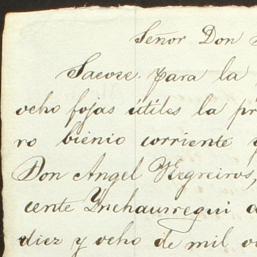 Señor Don
Sacose para la
ocho fojas útiles la pr
ro bienio corriente y
Don Angel Negreiros,
cente Ynchaurregui a
diez y ocho de mil oc